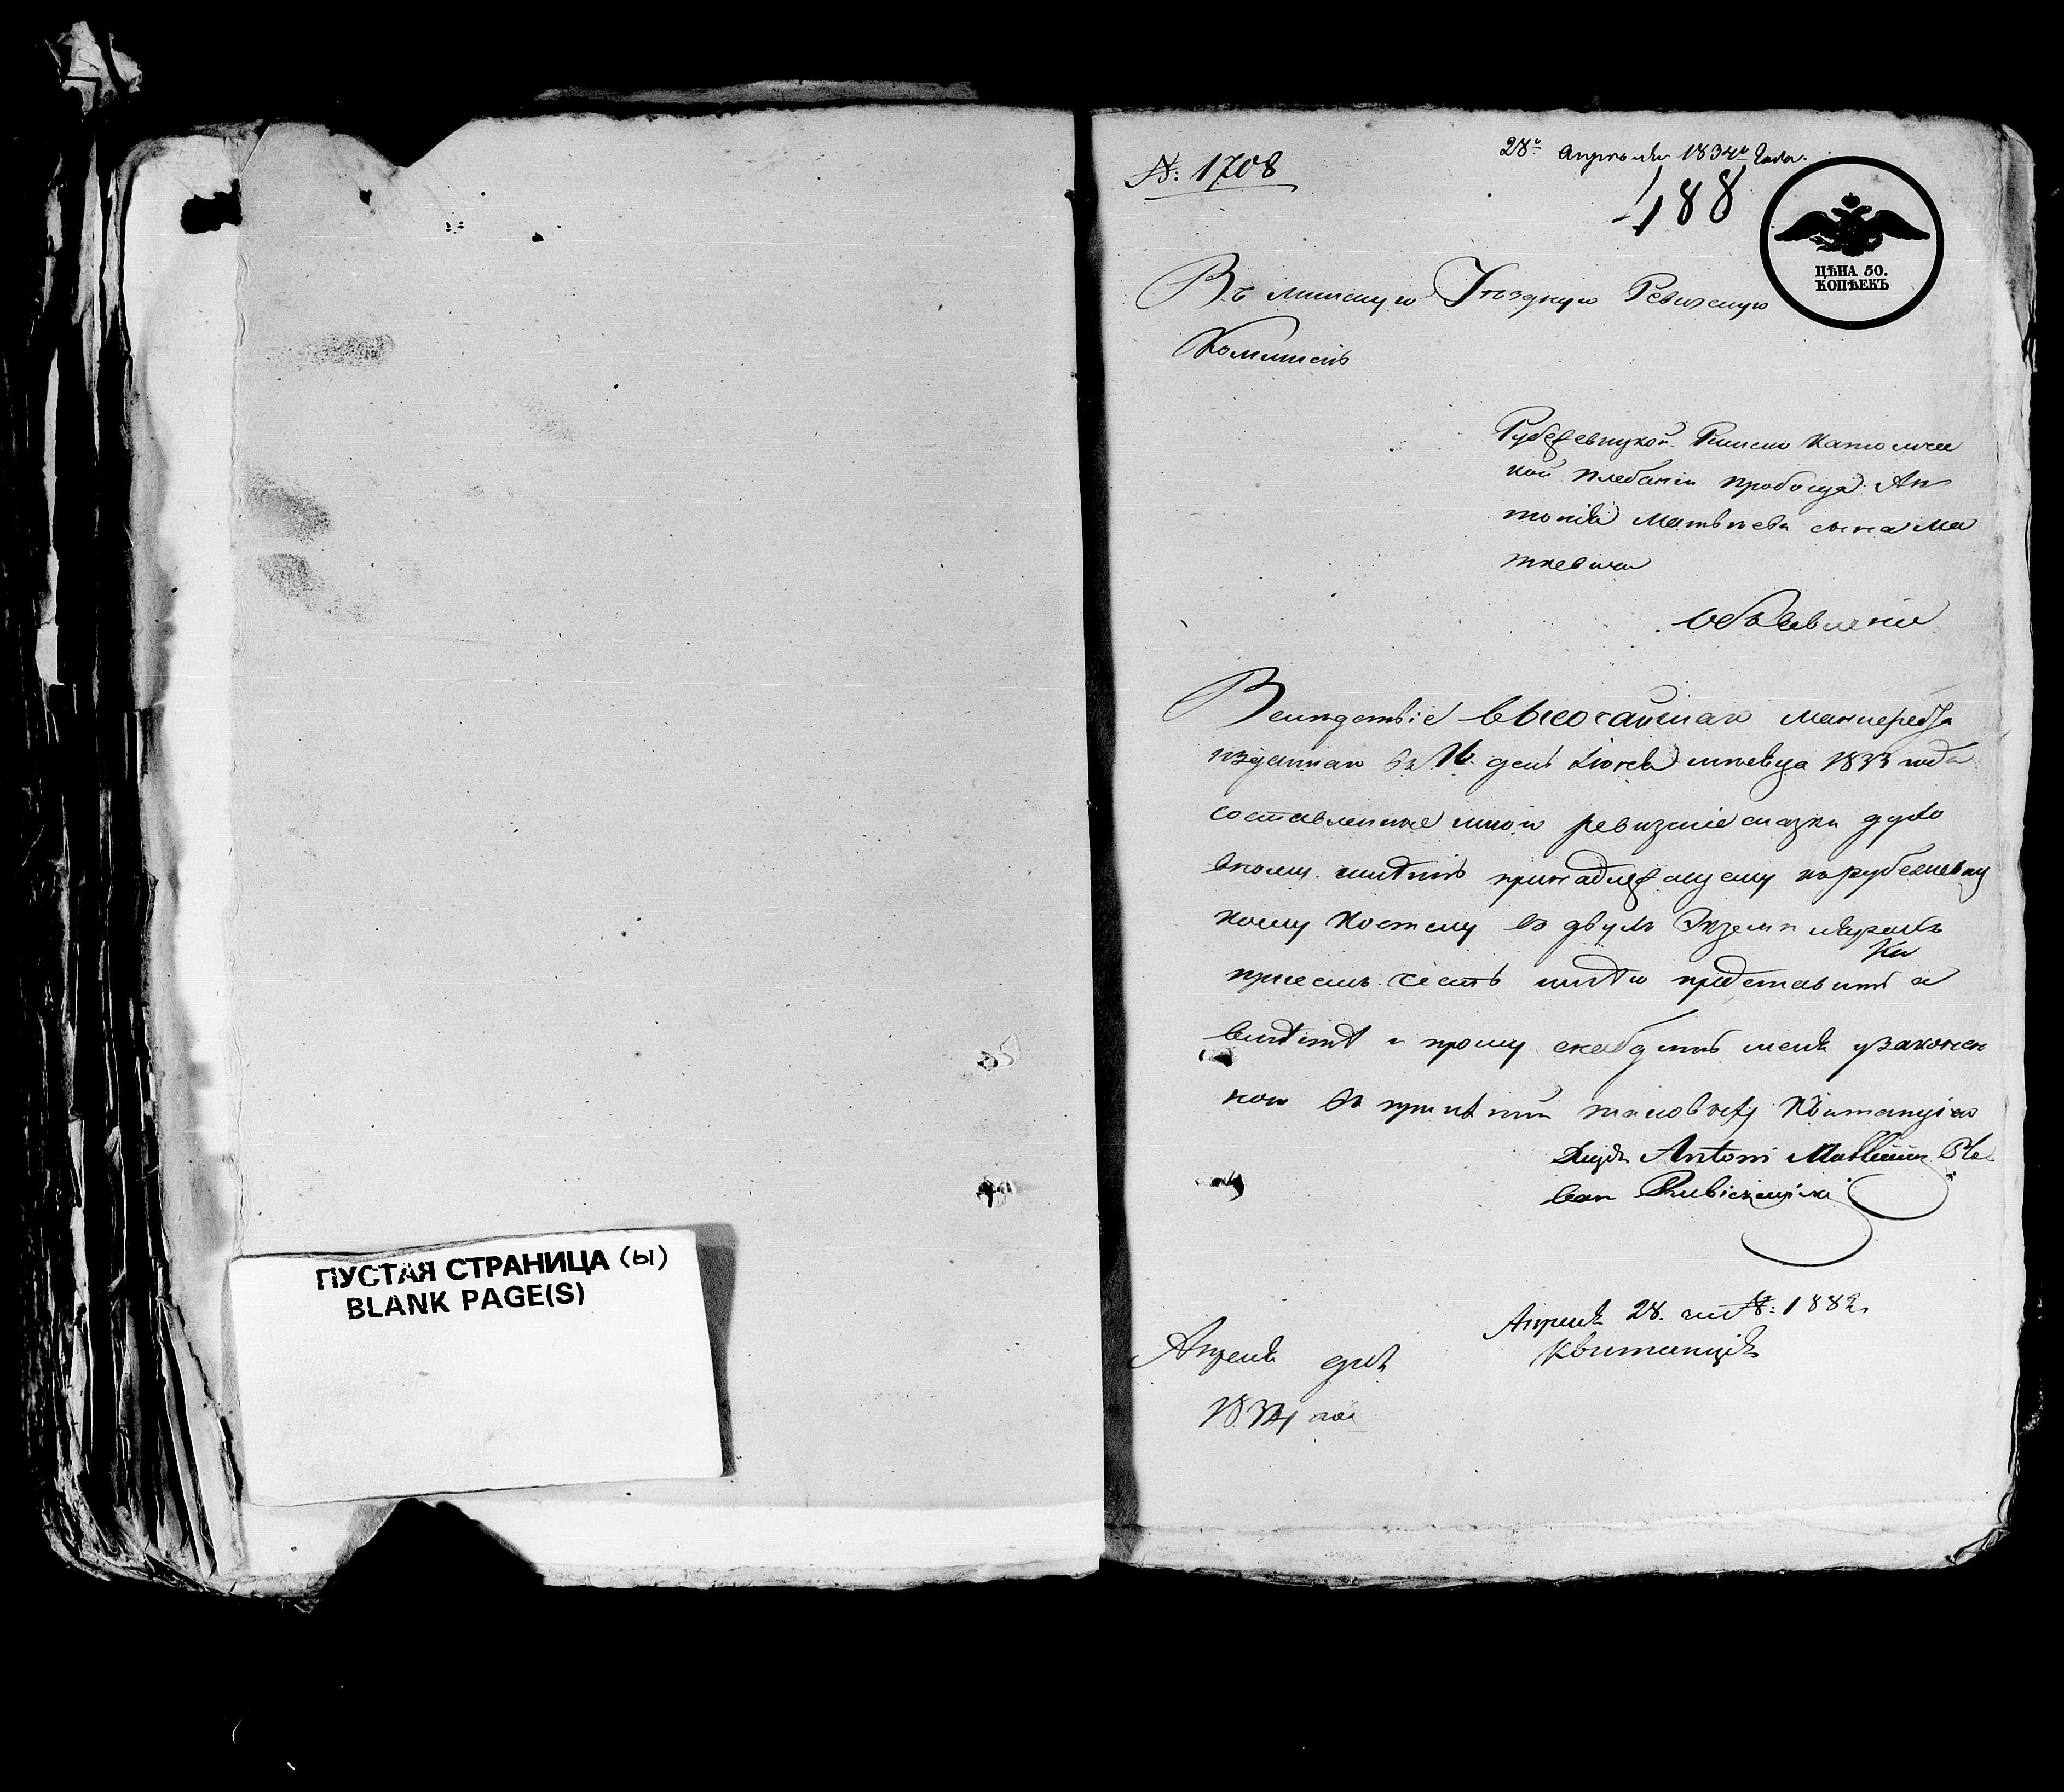 ПУСТАЯ СТРАНИЦА (ы)
BLANK PAGE(S)
№: 1708
28го Апреля 1834го Года.
488
ЦѢНА 50.
КОПѢЕКЪ
Въ минскую Уездную Ревизскую
Комисию
Рубежевицкой Римско Католичес
кой плебании пробоща Ан
тония Матвеева сына Ма
цкевича
Объявление
Вследствіе высочайшаго манифеста
изданнаго въ 16 день Іюня месяца 1833 года
составленные мною ревизские сказки духо
вному имению принадлежащему к рубежевиц
кому костелу въ двухъ Экземплярахъ
при семъ честь имею представить
и прошу снабдить меня узаконен
ною въ принятии таковыхъ Квитанциею
Xiądz Antoni Plе
ban Rubieżewicki
Апреля 28. №: 1882.
Квитанция
Апреля дня
1834 года